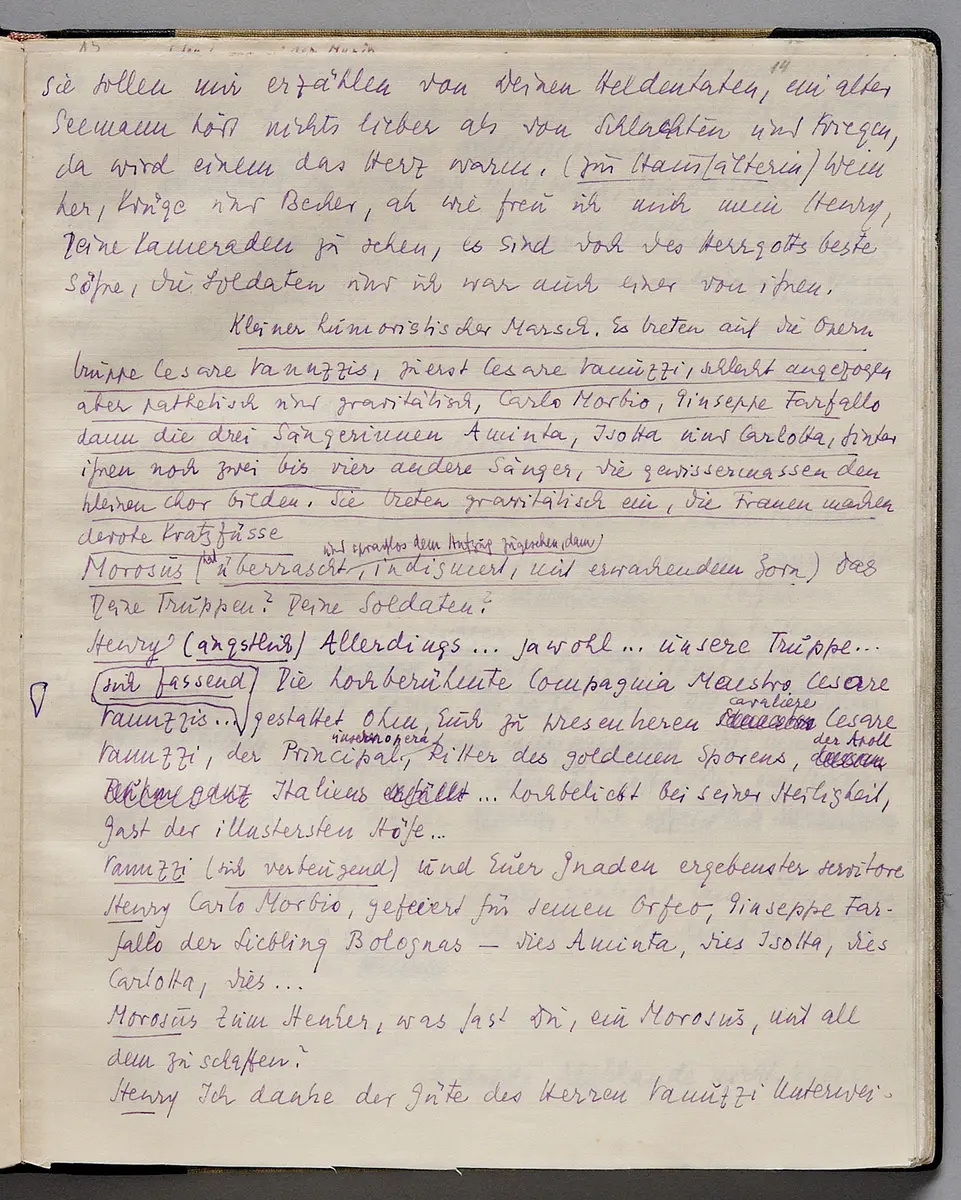 14
sie sollen mir erzählen von Deinen Heldentaten, ein alter
Seemann hört nichts lieber als von Schlachten und Kriegen,
da wird einem das Herz warm. (zur Haushälterin) Wein
her, Krüge und Becher, ah wie freu ich mich mein Henry,
Deine Kameraden zu sehen, es sind doch des Herrgotts beste
Söhne, die Soldaten und ich war auch einer von ihnen.
Kleiner humoristischer Marsch. Es treten auf die Opern
truppe Cesare Vanuzzis, zuerst Cesare Vanuzzi, schlecht angezogen
aber pathetisch und gravitätisch, Carlo Morbio, Giuseppe Farfallo
dann die drei Sängerinnen Aminta, Isotta und Carlotta, hinter
ihnen noch zwei bis vier andere Sänger, die gewissermassen den
kleinen Chor bilden. Sie treten gravitätisch ein, die Frauen machen
devote Kratzfüsse
und sprachlos dem Aufzug zugesehen, dann
Morosus (hat überrascht, indigniert, mit erwachendem Zorn) Das
Deine Truppen? Deine Soldaten?
Henry (ängstlich) Allerdings ... jawohl ... unsere Truppe...
(sich fassend) Die hochberühmte Compagnia Maestro Cesare
cavaliere
Vanuzzis... gestattet Ohm, Euch zu presentieren Cesare
unserer opera der Apoll
Vanuzzi, der Principal, Ritter des goldenen Sporens,
Ruhm ganz Italiens erfüllt ... hochbeliebt bei seiner Heiligkeit,
Gast der illustersten Höfe...
Vanuzzi (sich verbeugend) und Euer Gnaden ergebenster servitore
Henry Carlo Morbio, gefeiert für seinen Orfeo, Giuseppe Far-
fallo der Liebling Bolognas — dies Aminta, dies Isotta, dies
Carlotta, dies ...
Morosus Zum Henker, was hast Du, ein Morosus, mit all
dem zu schaffen?
Henry Ich danke der Güte des Herren Vanuzzi Unterwei-